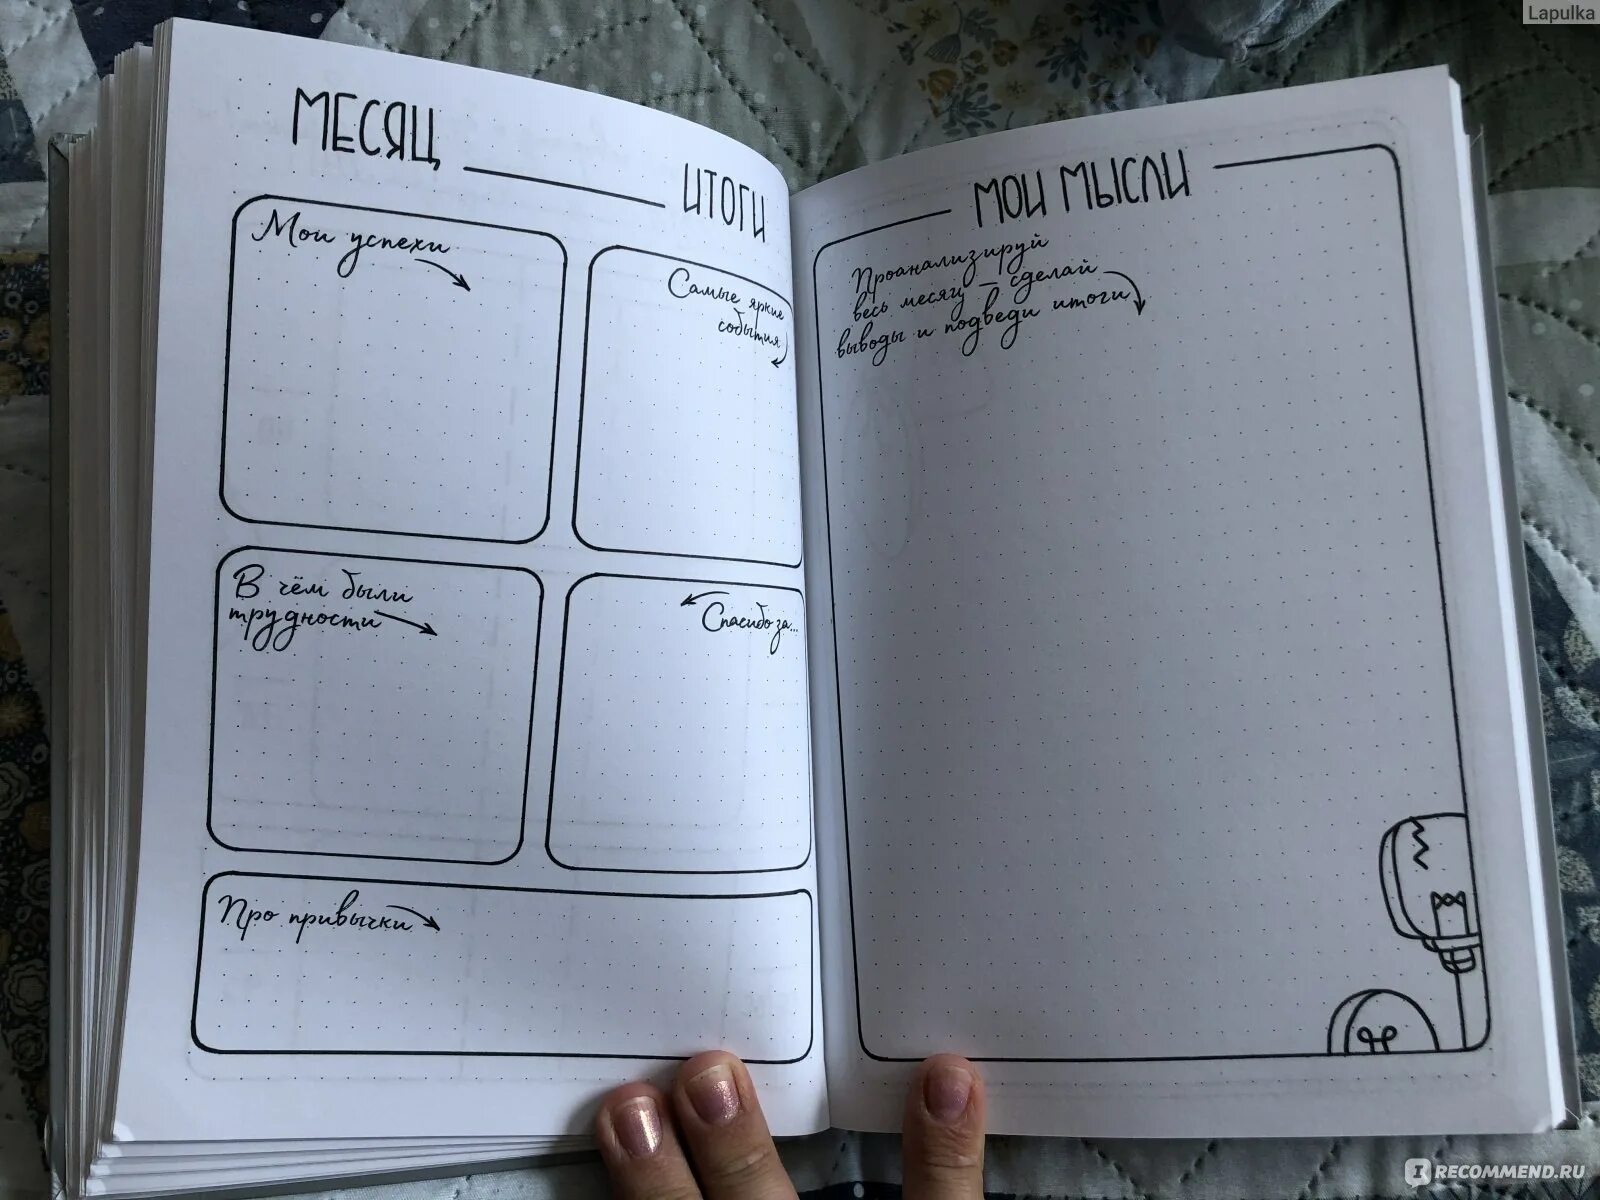 Lapulka
МЕСЯЦ
ИТОГИ
Мои успехи
Самые яркие
события
В чём были
трудности
Спасибо за...
Про привычки
МОИ МЫСЛИ
Проанализируй
весь месяц – сделай
выводы и подведи итоги
RECOMMEND.RU